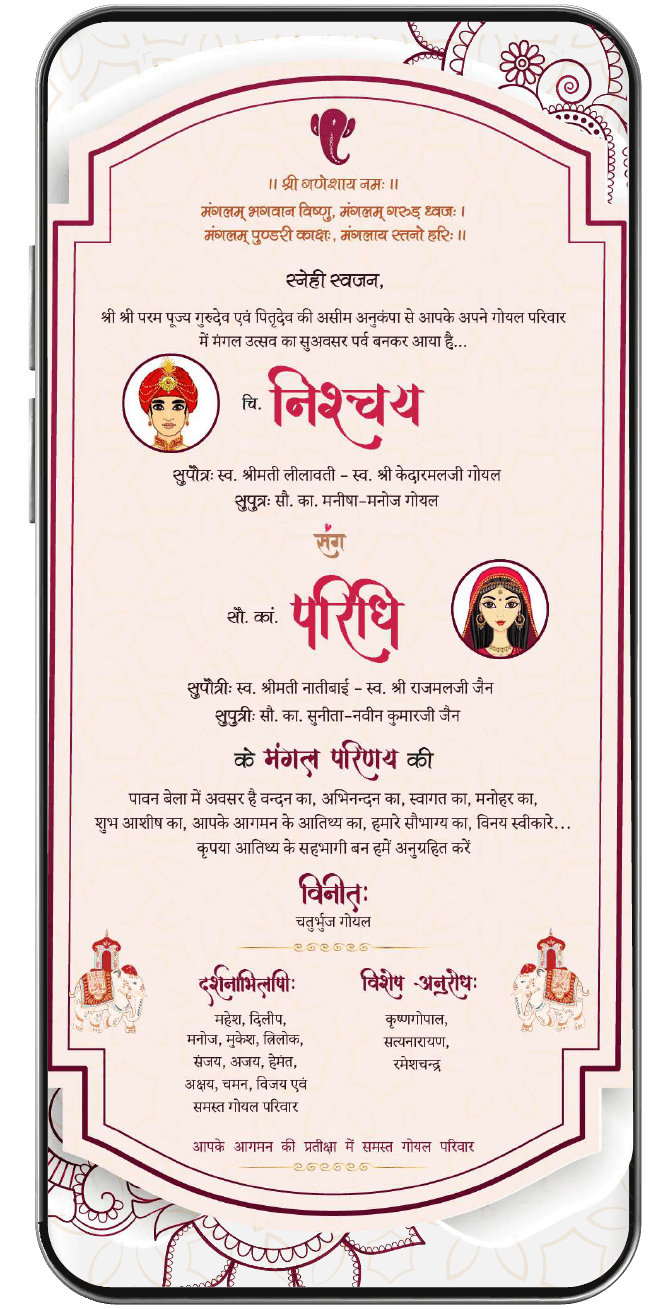 ॥ श्री गणेशाय नमः ॥
मंगलम् भगवान विष्णु, मंगलम् गरुड़ ध्वजः ।
मंगलम् पुण्डरी काक्षः, मंगलाय स्तनो हरिः ॥
स्नेही स्वजन,
श्री श्री परम पूज्य गुरुदेव एवं पितृदेव की असीम अनुकंपा से आपके अपने गोयल परिवार
में मंगल उत्सव का सुअवसर पर्व बनकर आया है...
चि. निश्चय
सुपौत्रः स्व. श्रीमती लीलावती - स्व. श्री केदारमलजी गोयल
सुपुत्रः सौ. का. मनीषा-मनोज गोयल
संग
सौ. कां. परिधि
सुपौत्रीः स्व. श्रीमती नातीबाई - स्व. श्री राजमलजी जैन
सुपुत्रीः सौ. का. सुनीता-नवीन कुमारजी जैन
के मंगल परिणय की
पावन बेला में अवसर है वन्दन का, अभिनन्दन का, स्वागत का, मनोहर का,
शुभ आशीष का, आपके आगमन के आतिथ्य का, हमारे सौभाग्य का, विनय स्वीकारे...
कृपया आतिथ्य के सहभागी बन हमें अनुग्रहित करें
विनीतः
चतुर्भुज गोयल
दर्शनाभिलाषीः
महेश, दिलीप,
मनोज, मुकेश, त्रिलोक,
संजय, अजय, हेमंत,
अक्षय, चमन, विजय एवं
समस्त गोयल परिवार
विशेष -अनुरोधः
कृष्णगोपाल,
सत्यनारायण,
रमेशचन्द्र
आपके आगमन की प्रतीक्षा में समस्त गोयल परिवार